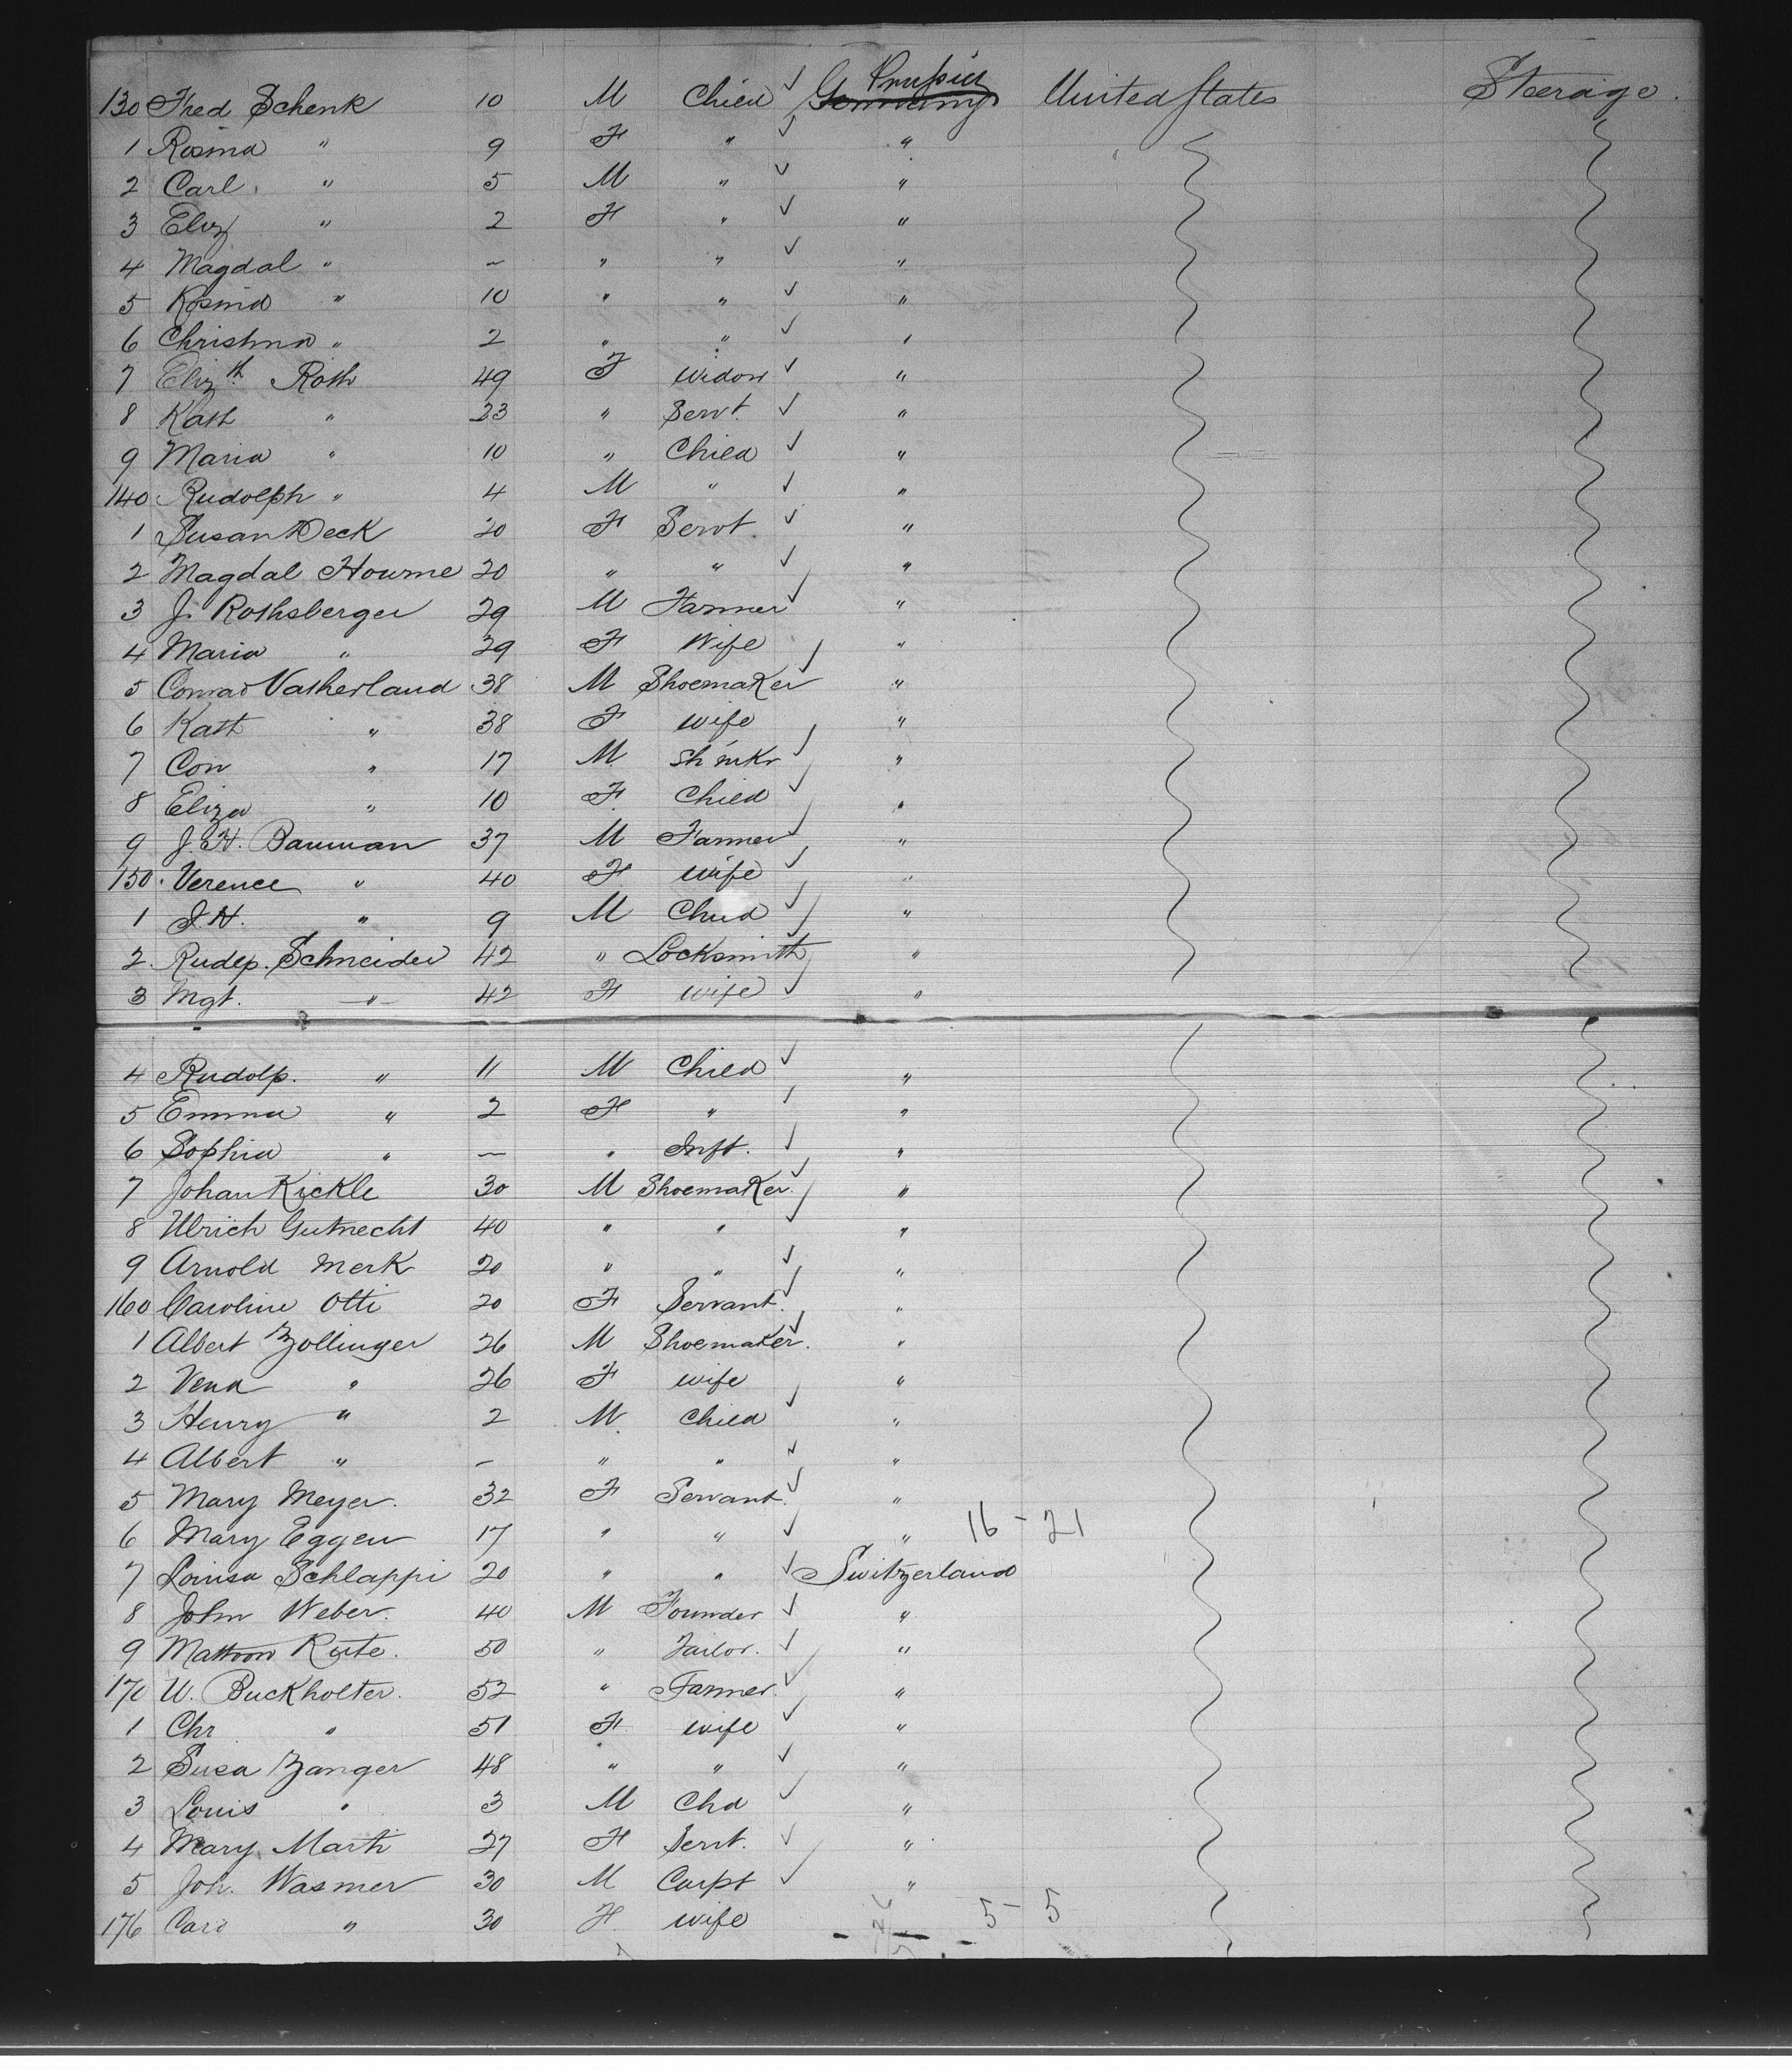 130 Fred Schenk 10 M Child ✓ Germany Prussia United States Steerage.
1 Rosina " 9 F " ✓ "
2 Carl " 5 M " ✓ "
3 Eliz " 2 F " ✓ "
4 Magdal " – " " ✓ "
5 Rosina " 10 " " ✓ "
6 Christina " 2 " " ✓ "
7 Elizth Roth 49 F widow ✓ "
8 Kath " 23 " Servt. ✓ "
9 Maria " 10 " Child ✓ "
140 Rudolph " 4 M " ✓ "
1 Susan Deck 20 F Servt. ✓ "
2 Magdal Hourne 20 " " ✓ "
3 J. Rothsberger 29 M Farmer ✓ "
4 Maria " 29 F Wife ✓ "
5 Conrad Vatherland 38 M Shoemaker ✓ "
6 Kath " 38 F wife ✓ "
7 Con " 17 M Sh'mkr ✓ "
8 Eliza " 10 F Child ✓ "
9 J. H. Bauman 37 M Farmer ✓ "
150 Verence " 40 F wife ✓ "
1 J. H. " 9 M Child ✓ "
2 Rudlp. Schneider 42 " Locksmith ✓ "
3 Mgt. " 42 F wife ✓ "
4 Rudolp. " 11 M Child ✓ "
5 Emma " 2 F " ✓ "
6 Sophia " – " Inft. ✓ "
7 Johan Kickle 30 M Shoemaker. ✓ "
8 Ulrich Gutnecht 40 " " ✓ "
9 Arnold Merk 20 " " ✓ "
160 Caroline Otti 20 F Servant. ✓ "
1 Albert Zollinger 26 M Shoemaker. ✓ "
2 Vena " 26 F wife ✓ "
3 Henry " 2 M Child ✓ "
4 Albert " – " " ✓ "
5 Mary Meyer. 32 F Servant. ✓ "
6 Mary Eggen 17 " " ✓ " 16 – 21
7 Louisa Schlappi 20 " " ✓ Switzerland
8 John Weber. 40 M Founder ✓ "
9 Rute. 50 " Tailor. ✓ "
170 U. Buckholter. 52 " Farmer. ✓ "
1 Chr " 51 F wife ✓ "
2 Susa Zanger 48 " " ✓ "
3 Louis " 3 M Chd ✓ "
4 Mary Marti 27 F Servt. ✓ "
5 Joh. Wasmer 30 M Carpt ✓ "
176 Caro " 30 F wife 5 – 5